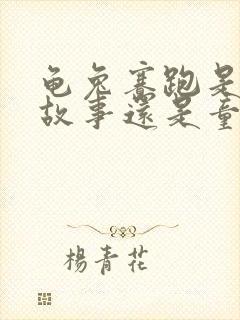 龟兔赛跑是
故事還是童
楊青花